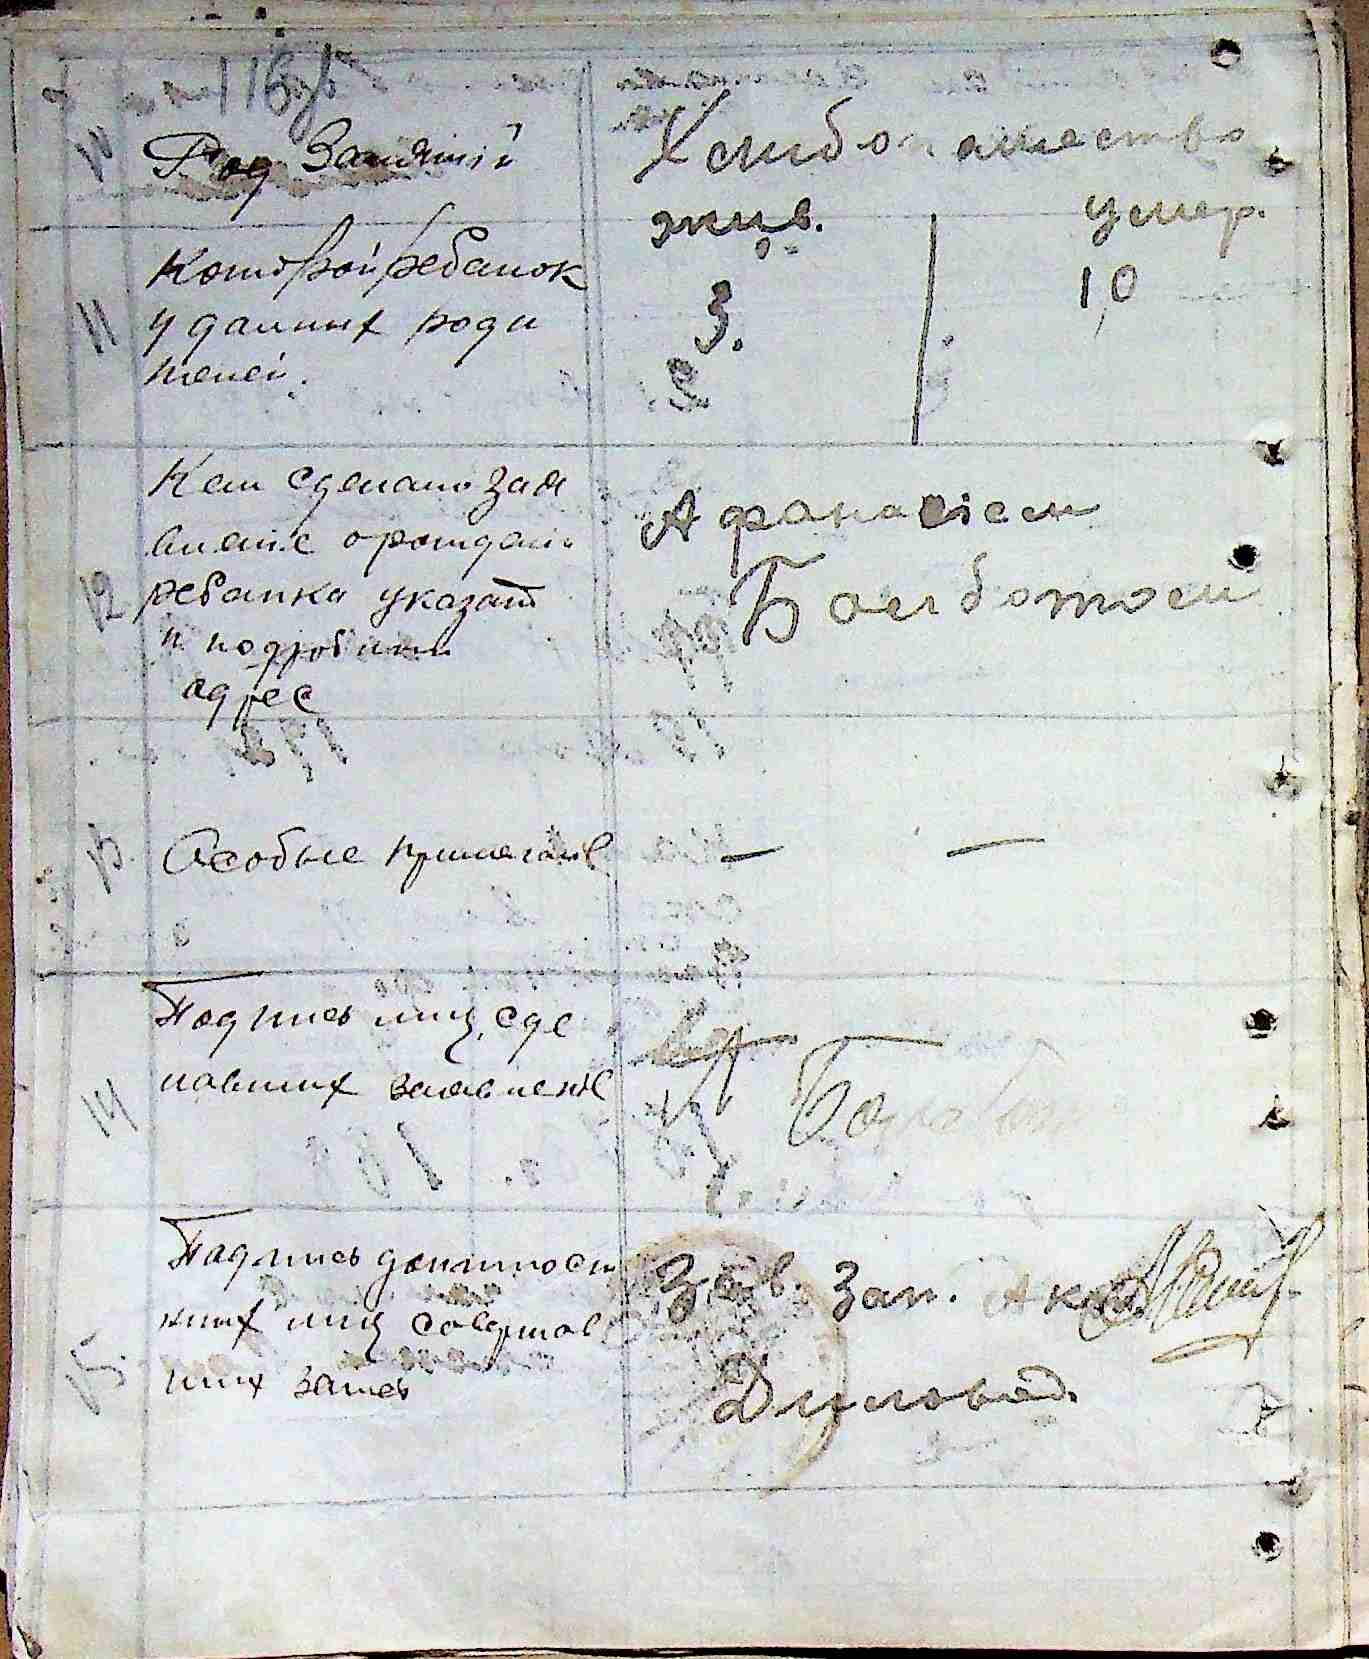 116 об
10 Род Занятий
Хлибопашество
11 Которой ребанок
у данных роди
телей.
жив. умер.
3. 10
12 Кем сделано Зая
вление о рождении
ребанка указат
и подробний
адрес
Афанасіем
Балботом
13. Особые примечание
— —
14 Подпись лиц, сде
лавших заявление
15. Подпись должност
ных лиц совершив
ших запись
Зав. Зап. Ак
Диловод.